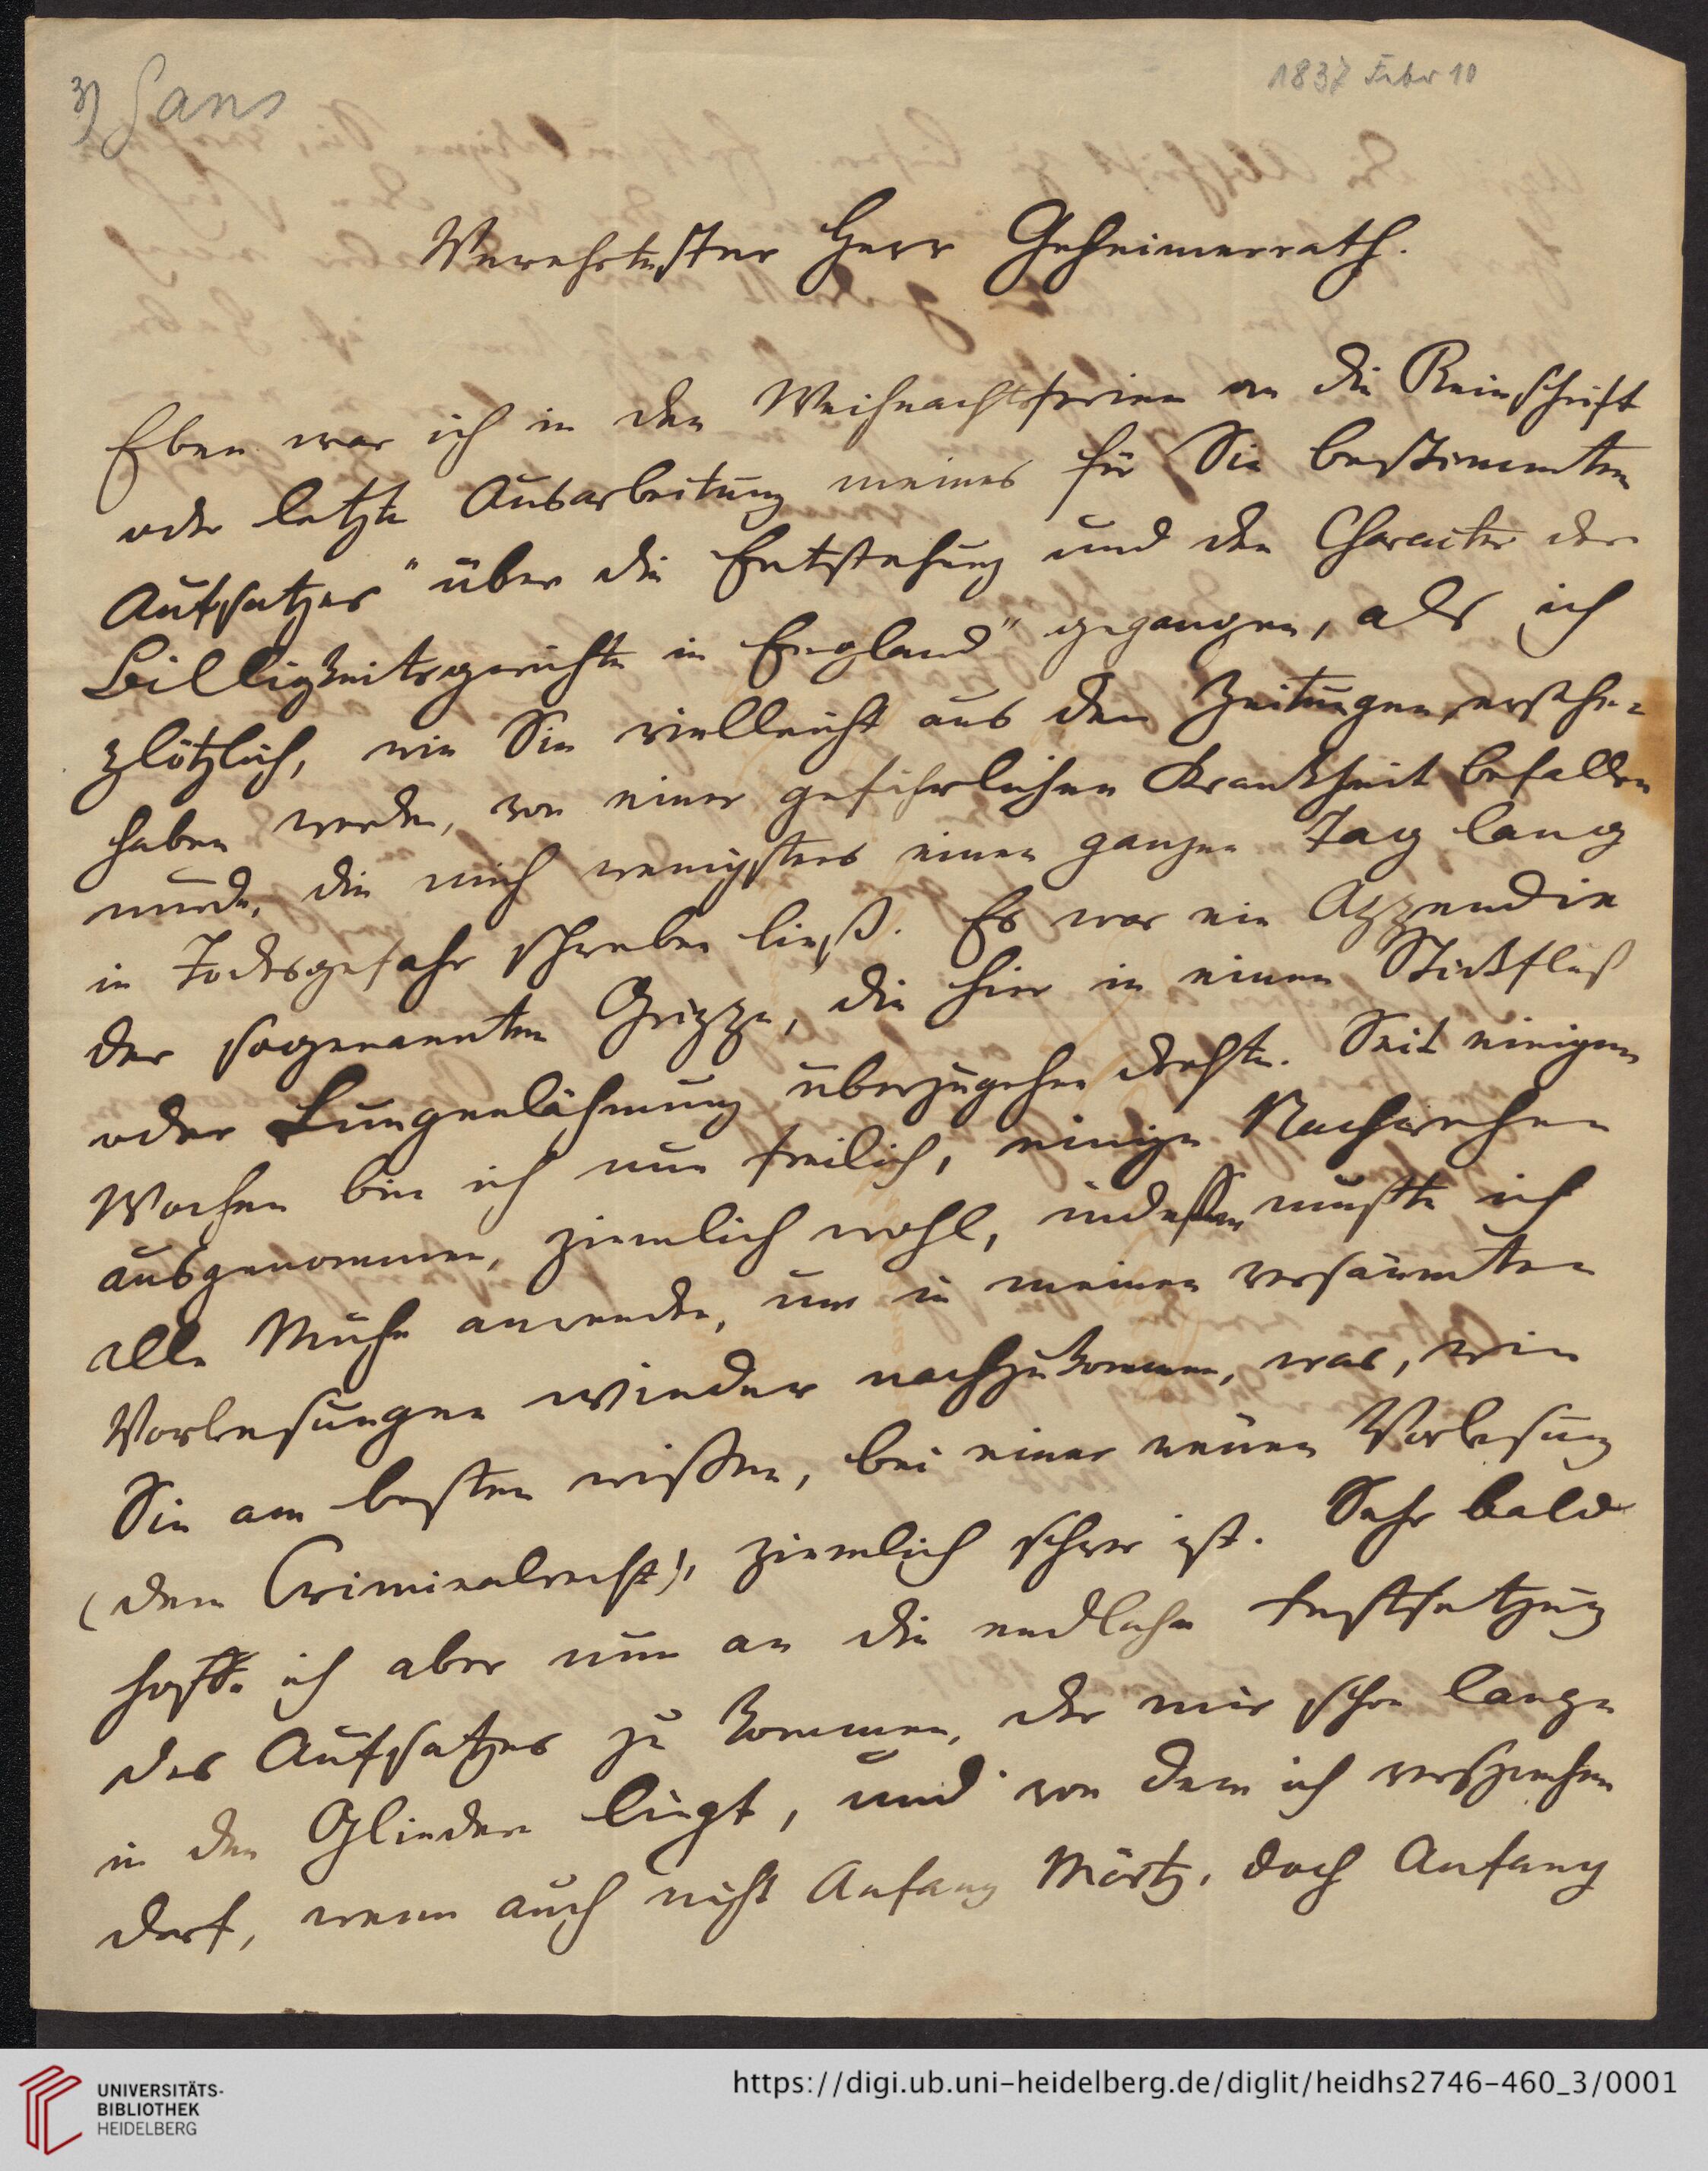 3) Gans
1837 Febr 10
Verehrtester Herr Geheimerrath.
Eben war ich in den Weihnachtsferien an die Reinschrift
oder letzte Ausarbeitung meines für Sie bestimmten
Aufsatzes "über die Entstehung und den Character der
Billigkeitsgerichte in England" gegangen, als ich
plötzlich, wie Sie vielleicht aus den Zeitungen ersehen
haben werden, von einer gefährlichen Krankheit befallen
wurde, die mich wenigstens einen ganzen Tag lang
in Todesgefahr schweben ließ. Es war ein Appendix
der sogenannten Grippe, die hier in einen Stickfluß
oder Lungenlähmung überzugehen drohte. Seit einigen
Wochen bin ich nun freilich, einige Nachwehen
ausgenommen, ziemlich wohl, indessen mußte ich
alle Mühe anwenden, um in meinen versäumten
Vorlesungen wieder nachzukommen, was, wie
Sie am besten wissen, bei einer neuen Vorlesung
(dem Criminalrecht), ziemlich schwer ist. Sehr bald
hoffe ich aber nun an die endliche Festsetzung
des Aufsatzes zu kommen, der mir schon lange
in den Gliedern liegt, und von dem ich versprechen
darf, wenn auch nicht Anfang Märtz, doch Anfang
UNIVERSITÄTS-
BIBLIOTHEK
HEIDELBERG
https://digi.ub.uni-heidelberg.de/diglit/heidhs2746-460_3/0001